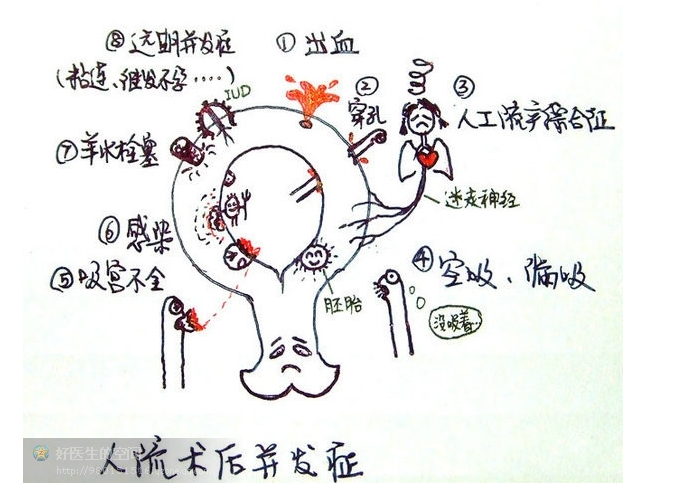 ⑧远期并发症
(粘连、继发不孕····)
①出血
IUD
②穿孔
③人工流产综合征
⑦羊水栓塞
迷走神经
⑥感染
⑤吸宫不全
④空吸、漏吸
胚胎
没吸着…
人流术后并发症
好医生的空间